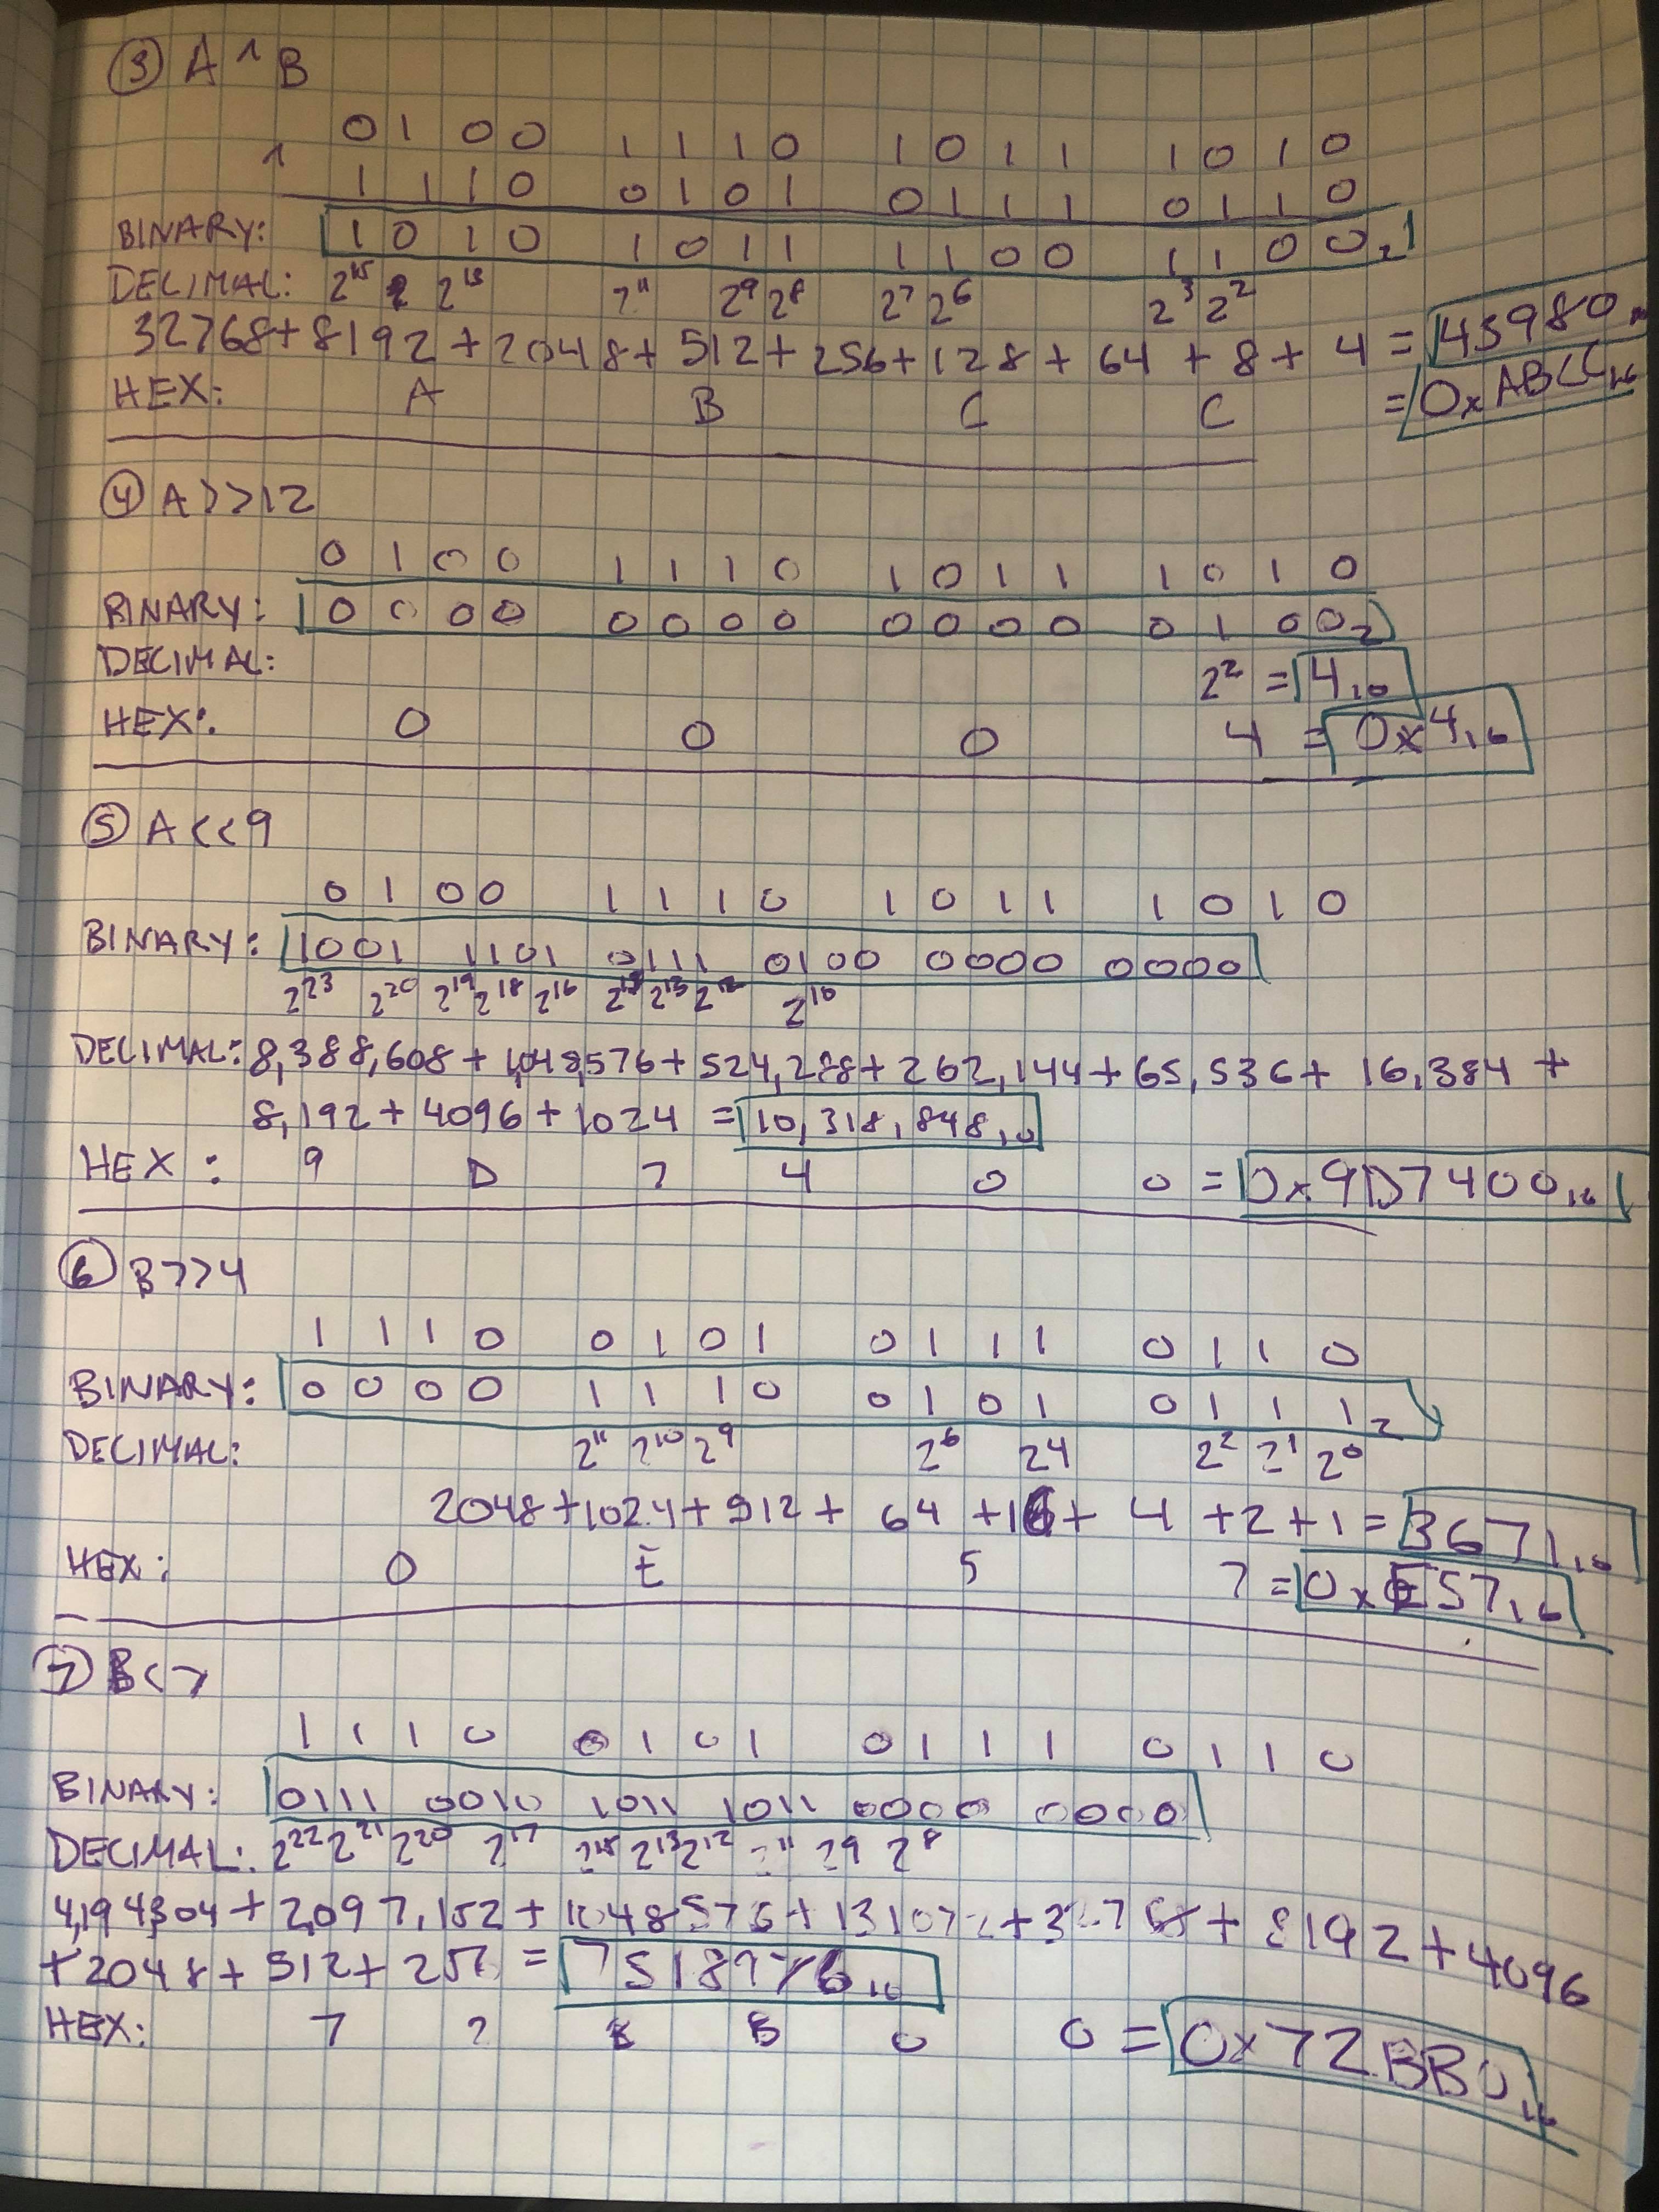 ③ A ^ B
0 1 0 0 1 1 1 0 1 0 1 1 1 0 1 0
^ 1 1 1 0 0 1 0 1 0 1 1 1 0 1 1 0
BINARY: 1 0 1 0 1 0 1 1 1 1 0 0 1 1 0 0₂
DECIMAL: 2¹⁵ 2¹³ 2¹¹ 2⁹ 2⁸ 2⁷ 2⁶ 2³ 2²
32768 + 8192 + 2048 + 512 + 256 + 128 + 64 + 8 + 4 = 43980₁₀
HEX: A B C C = 0xABCC₁₆
④ A >> 12
0 1 0 0 1 1 1 0 1 0 1 1 1 0 1 0
BINARY: 0 0 0 0 0 0 0 0 0 0 0 0 0 1 0 0₂
DECIMAL: 2² = 4₁₀
HEX: 0 0 0 4 = 0x4₁₆
⑤ A << 9
0 1 0 0 1 1 1 0 1 0 1 1 1 0 1 0
BINARY: 1001 1101 0111 0100 0000 0000
2²³ 2²⁰ 2¹⁹ 2¹⁸ 2¹⁶ 2¹⁴ 2¹³ 2¹² 2¹⁰
DECIMAL: 8,388,608 + 1,048,576 + 524,288 + 262,144 + 65,536 + 16,384 +
8,192 + 4096 + 1024 = 10,318,848₁₀
HEX: 9 D 7 4 0 0 = 0x9D7400₁₆
⑥ B >> 4
1 1 1 0 0 1 0 1 0 1 1 1 0 1 1 0
BINARY: 0 0 0 0 1 1 1 0 0 1 0 1 0 1 1 1₂
DECIMAL: 2¹¹ 2¹⁰ 2⁹ 2⁶ 2⁴ 2² 2¹ 2⁰
2048 + 1024 + 512 + 64 + 16 + 4 + 2 + 1 = 3671₁₀
HEX: 0 E 5 7 = 0xE57₁₆
⑦ B < 7
1 1 1 0 0 1 0 1 0 1 1 1 0 1 1 0
BINARY: 0111 0010 1011 1011 0000 0000
DECIMAL: 2²² 2²¹ 2²⁰ 2¹⁷ 2¹⁵ 2¹³ 2¹² 2¹¹ 2⁹ 2⁸
4,194304 + 2,097,152 + 1048576 + 131072 + 32768 + 8192 + 4096
+ 2048 + 512 + 256 =
HEX: 7 2 B B 0 0 = 0x72BB0₁₆